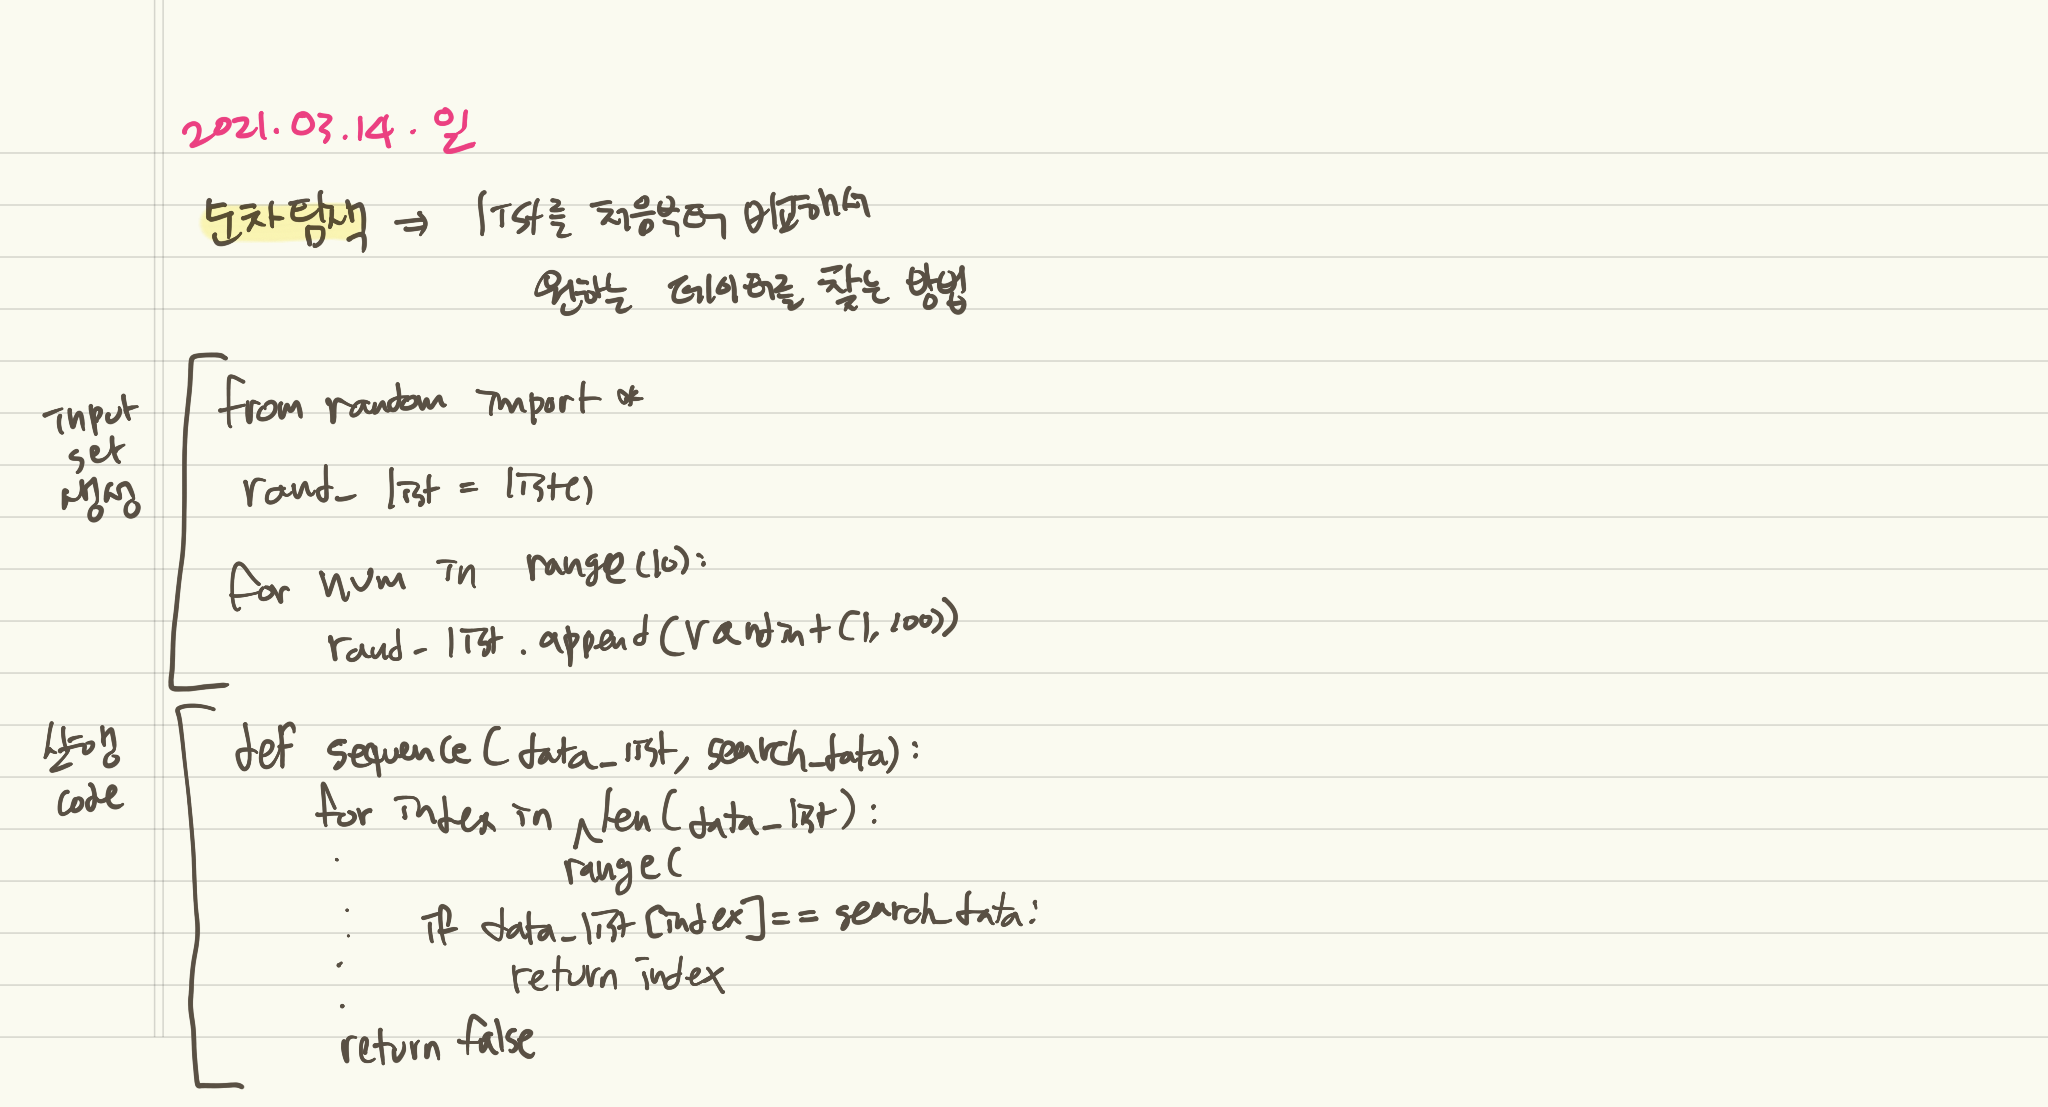 2021.03.14.일
순차탐색 ⇒ list를 처음부터 비교해서
원하는 데이터를 찾는 방법
input
set
생성
from random import *
rand_list = list()
for num in range(10):
rand_list.append(randint(1,100))
실행
code
def sequence(data_list, search_data):
for index in len(data_list):
range(
if data_list[index]== search_data:
return index
return false